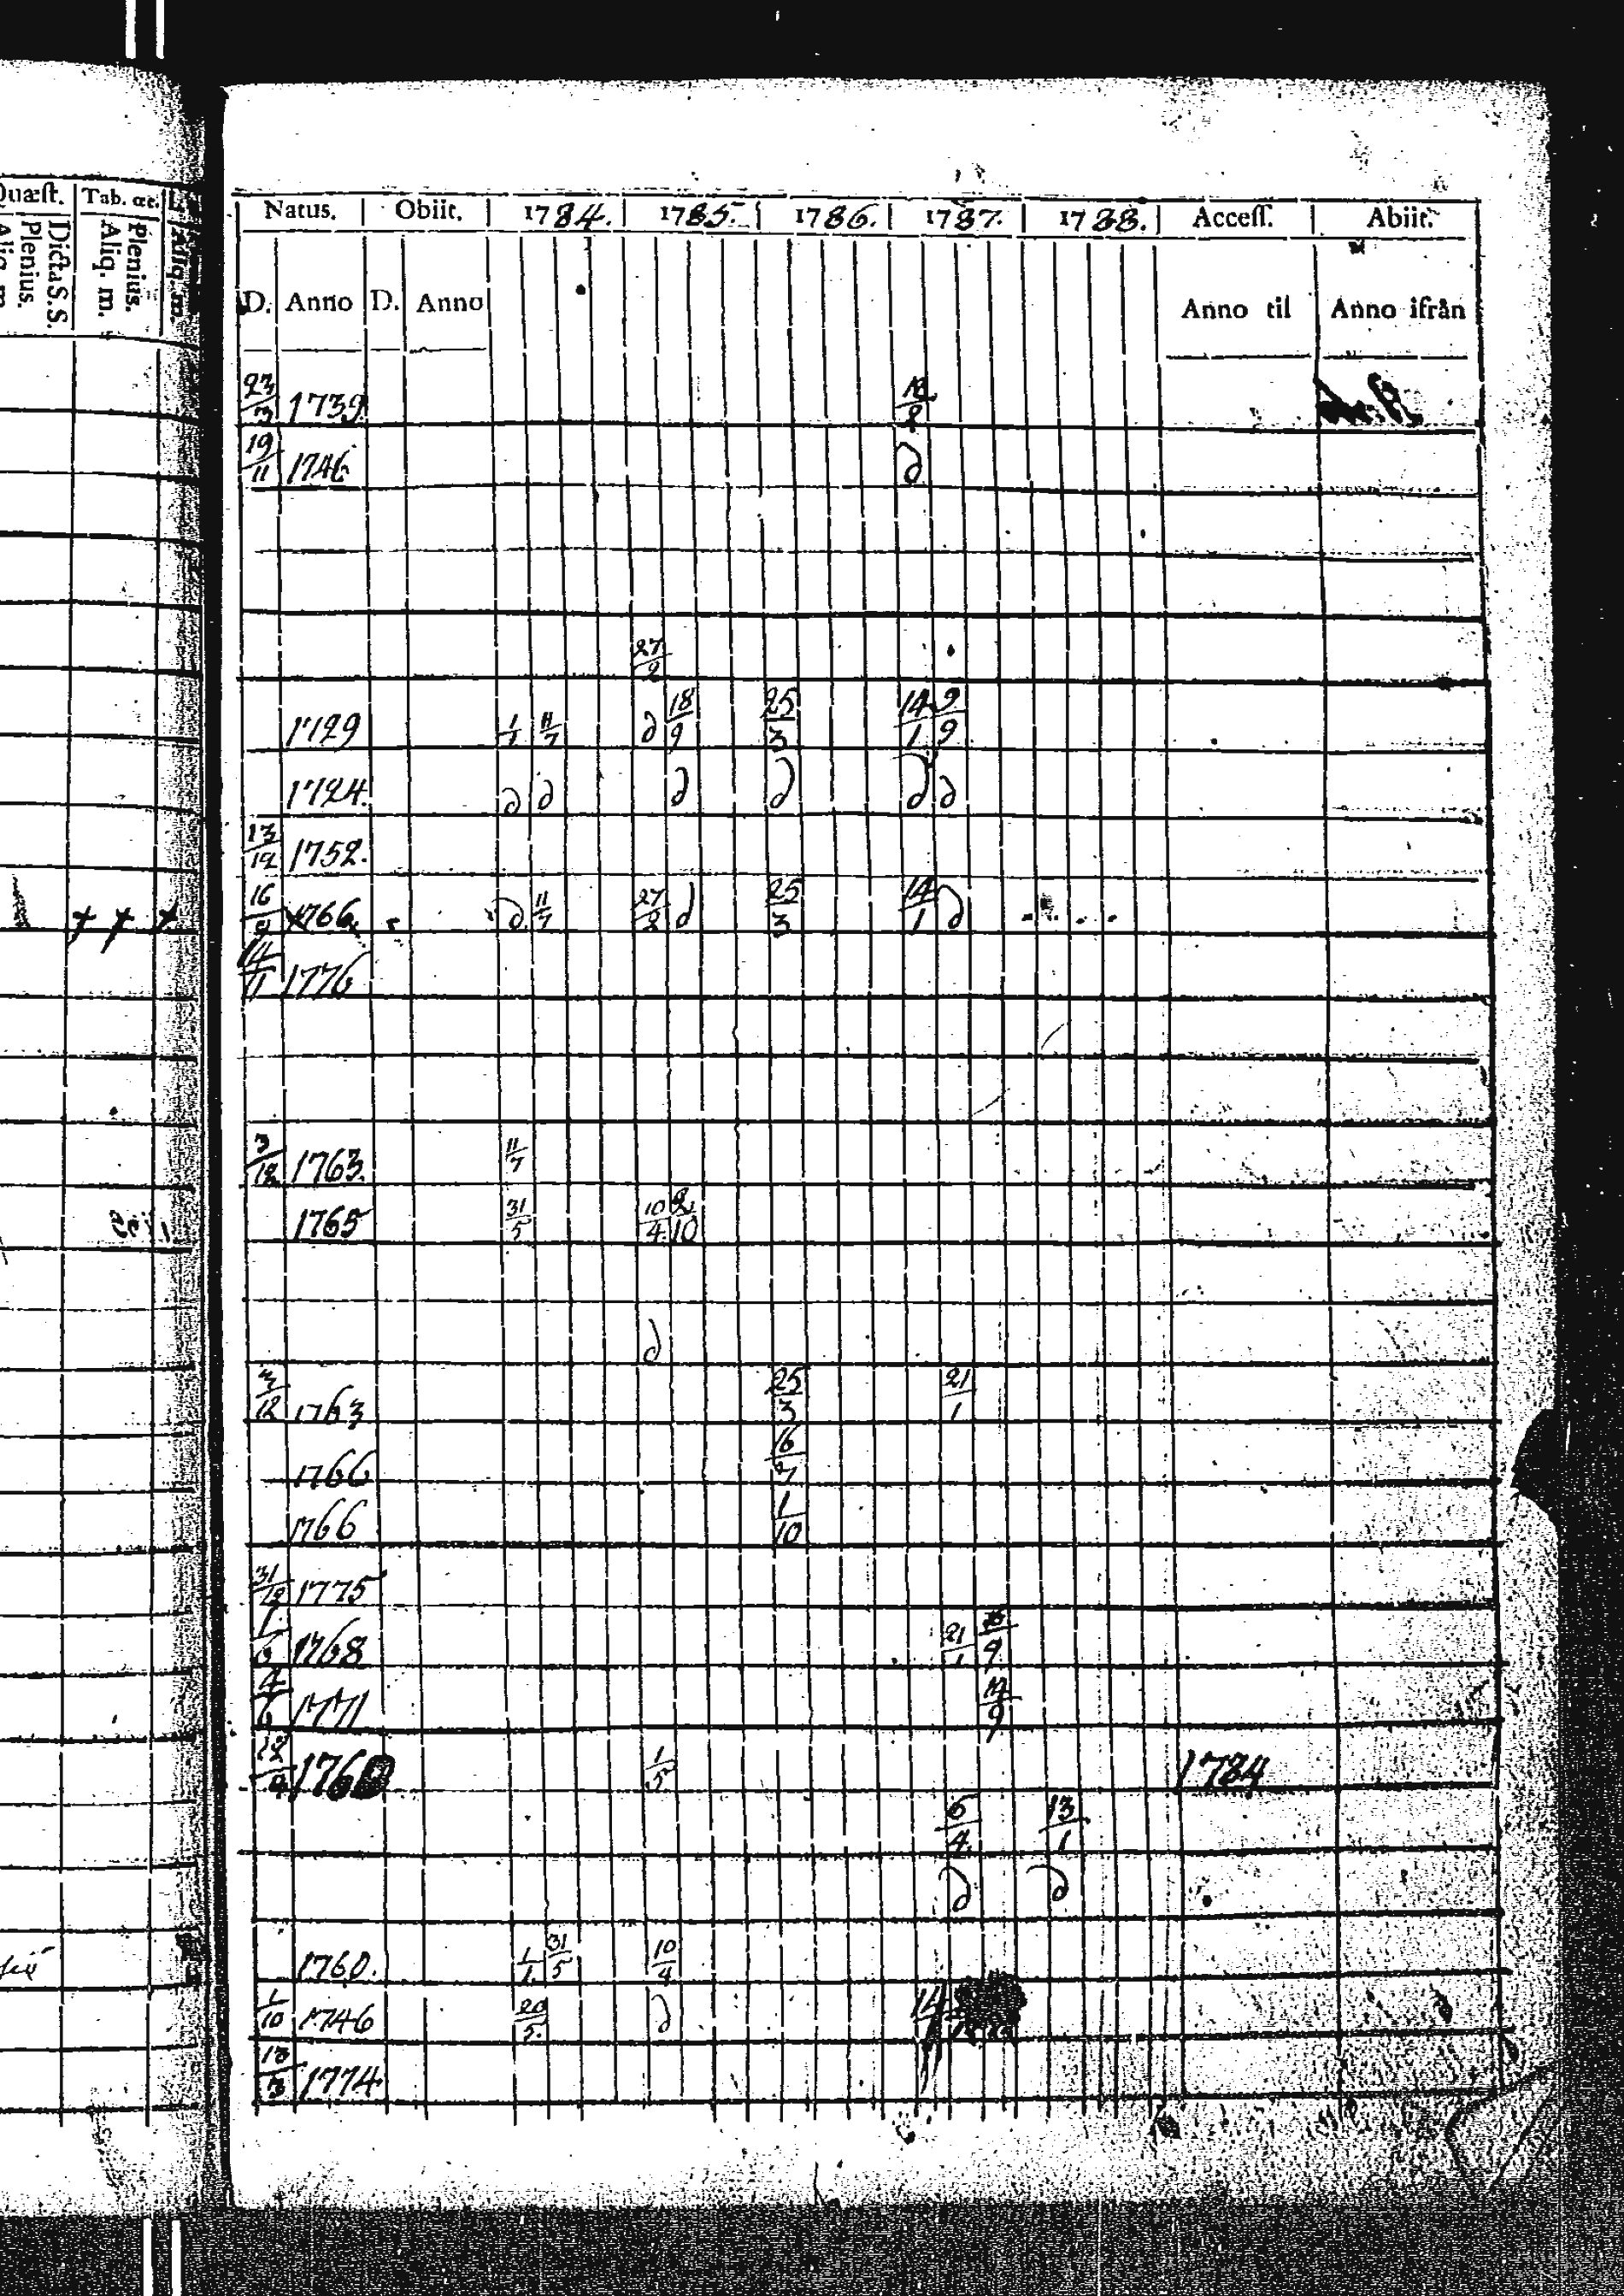 Quæst. Tab. œc.
Dicta S.S.
Plenius.
Aliq. m.
Plenius.
Aliq. m.
Natus. Obiit. 1784. 1785. 1786. 1787. 1788. Access. Abiit.
D. Anno D. Anno Anno til Anno ifrån
23/3 1739 18/8
19/11 1746 d
27/2
1729 1/1 11/7 d 18/9 25/3 14/1 9/9
1724. d d d d d d
13/12 1752.
16/9 1766 d 11/7 27/2 d 25/3 14/1 d
14/11 1776
3/12 1763. 11/7
1765 31/5 10/4 2/10
d
3/12 1763 25/3 21/1
1766 16/7
1766 1/10
31/12 1775
1768 21/1
4/6 1771
176 1/5 1784
6/4 13/1
d d
1760. 1/1 31/5 10/4
1/10 1746 20/5 d
1774